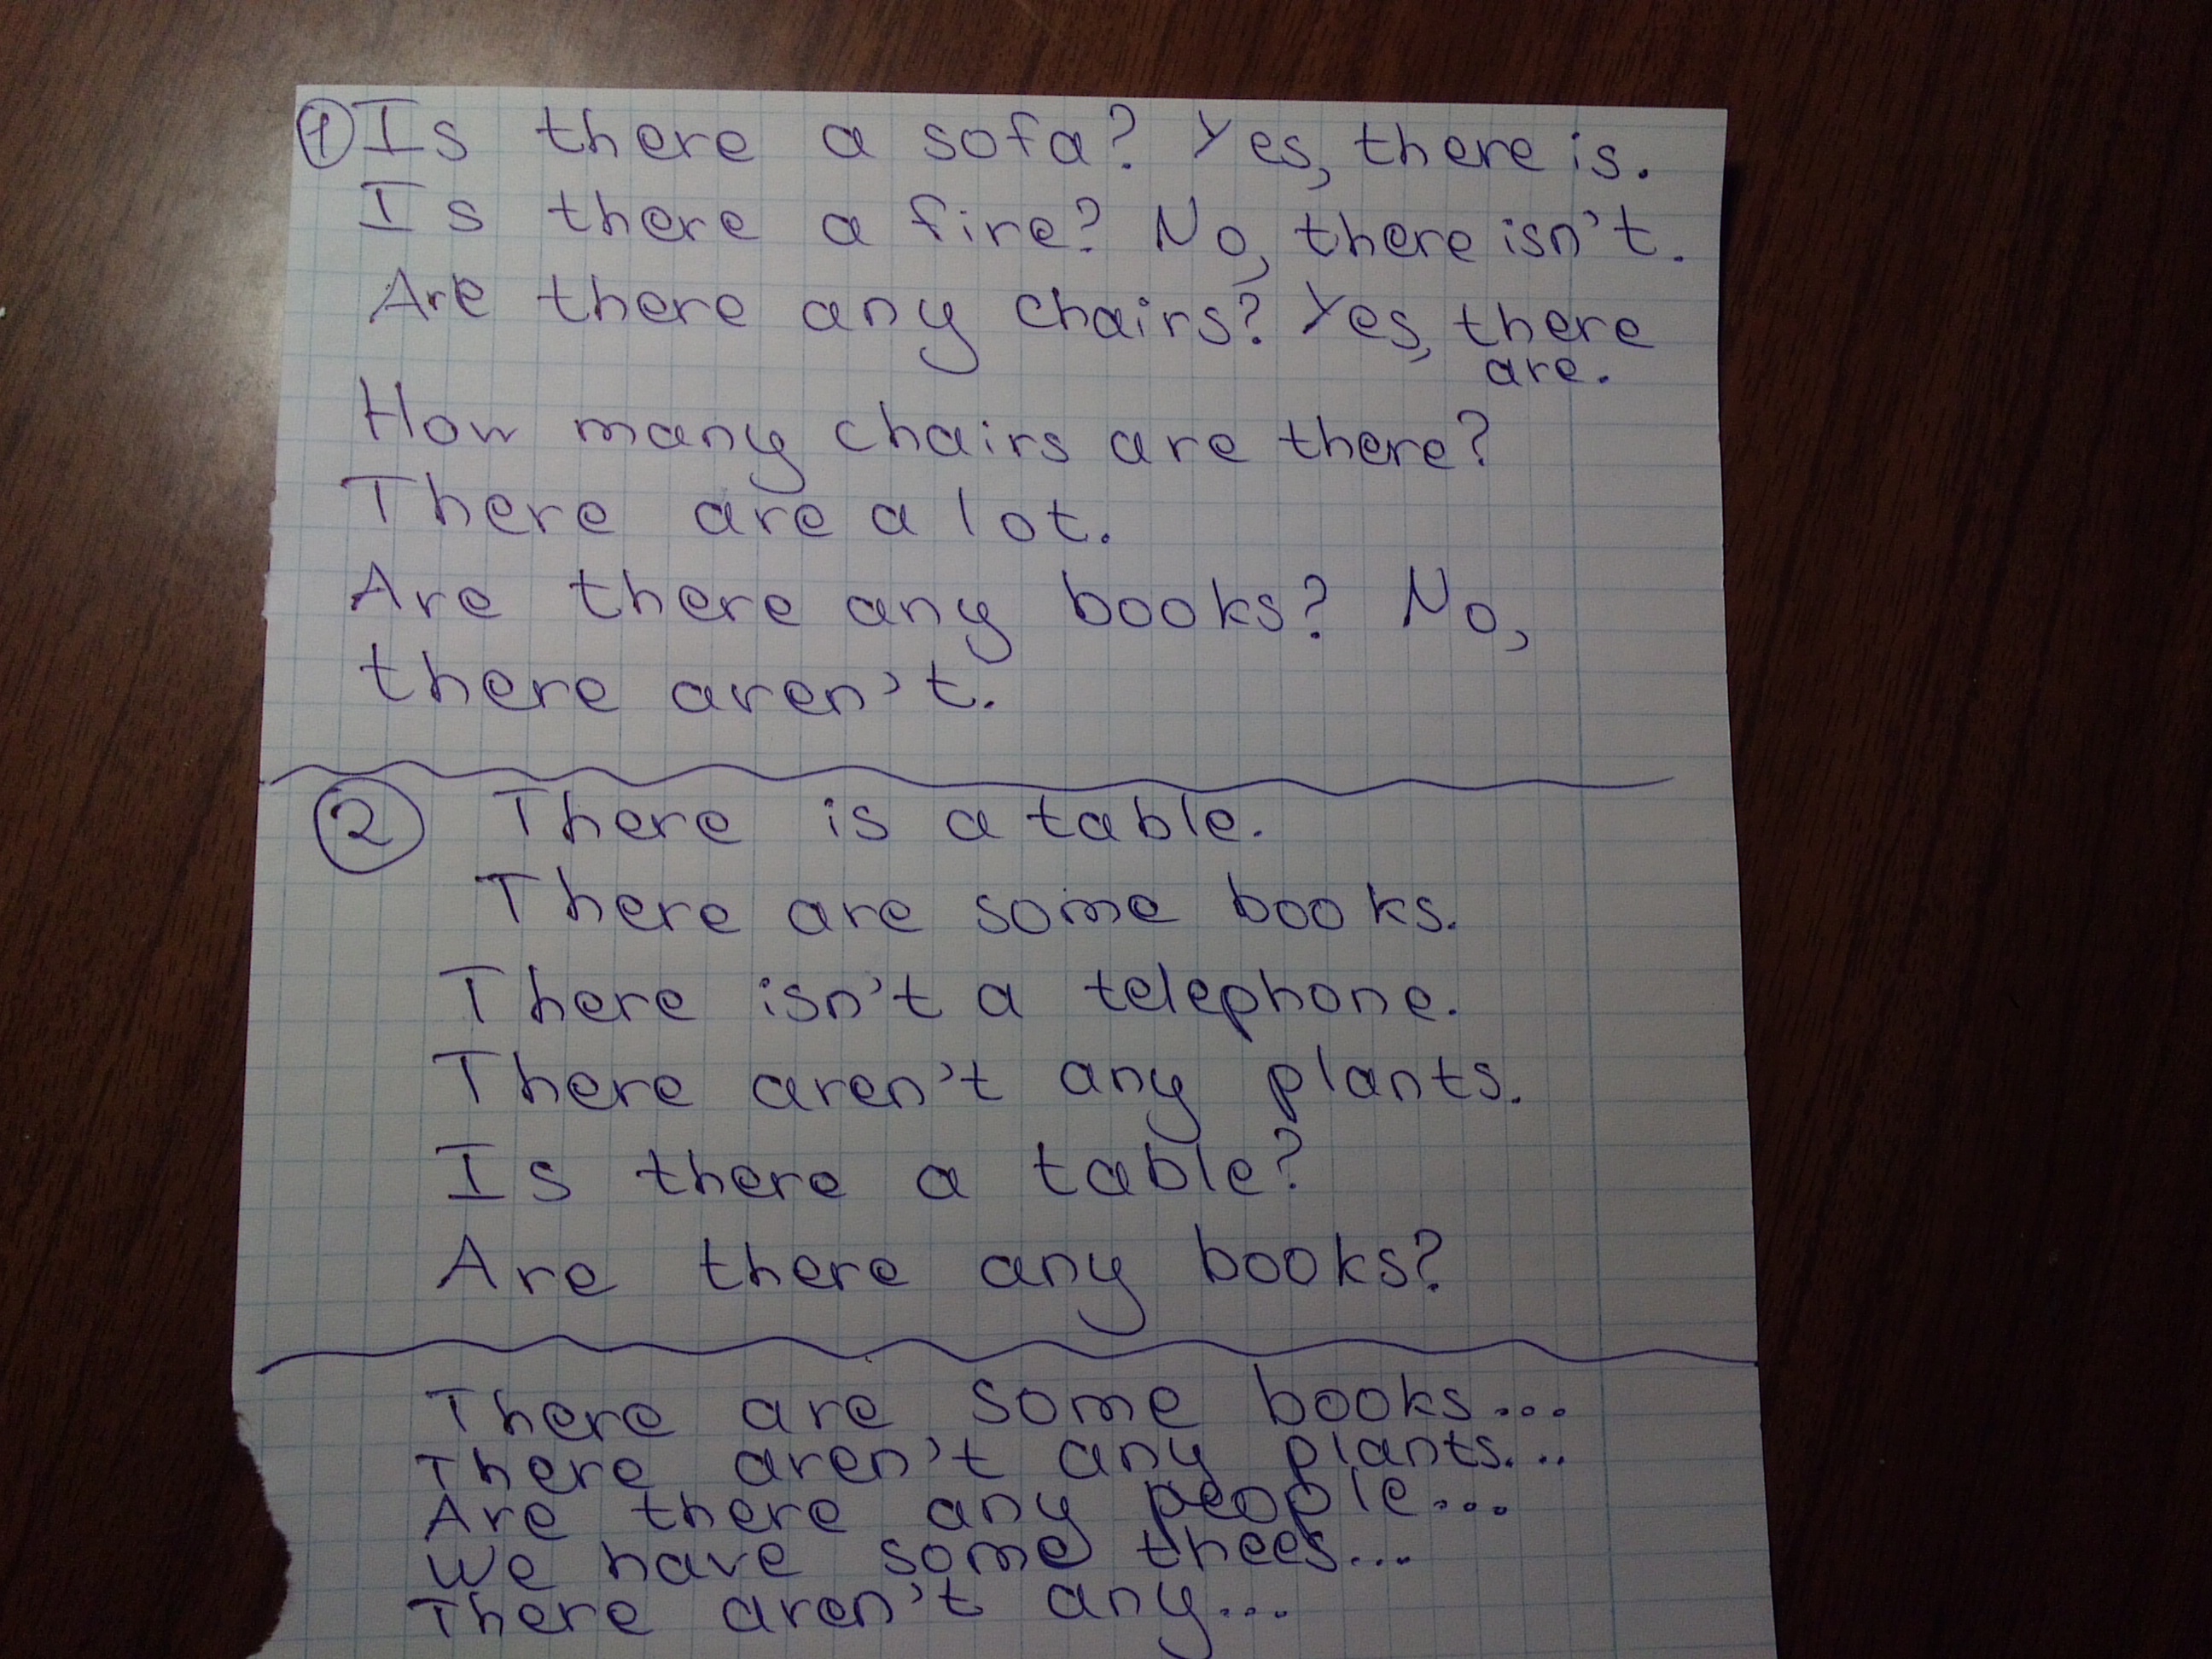 1 Is there a sofa? Yes, there is.
Is there a fire? No, there isn't.
Are there any chairs? Yes, there
are.
How many chairs are there?
There are a lot.
Are there any books? No,
there aren't.
2 There is a table.
There are some books.
There isn't a telephone.
There aren't any plants.
Is there a table?
Are there any books?
There are some books...
There aren't any plants...
Are there any people...
We have some thees...
There aren't any...